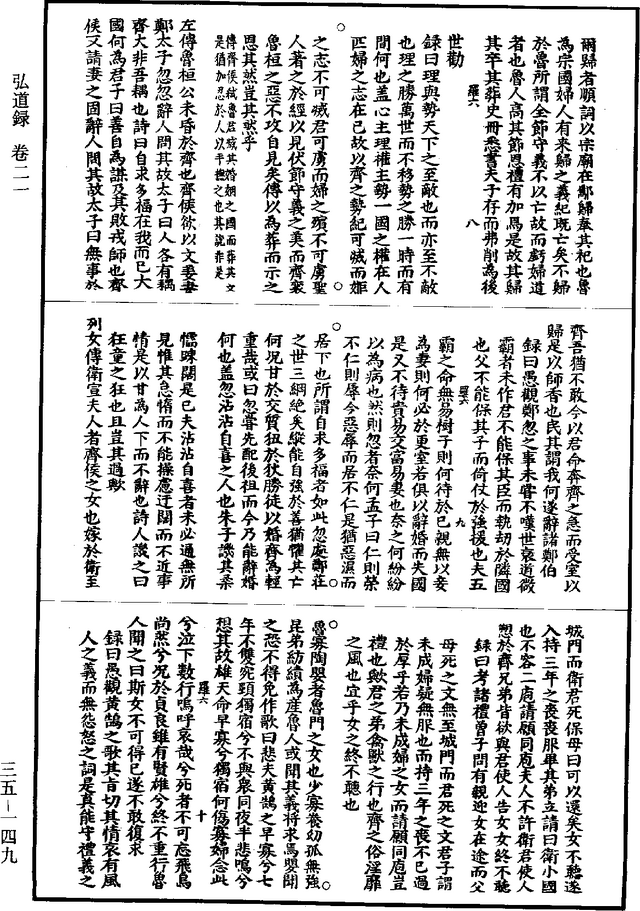 弘道録 卷二一
三五－一四九
爾歸者順詞以宗廟在酅歸奉其祀也魯
為宗國婦人有來歸之義紀既亡矣不歸
於魯所謂全節守義不以亡故而虧婦道
者也魯人高其節恩禮有加焉是故其歸
其卒其葬史冊悉書夫子存而弗削為後
世勸
羅六
八
録曰理與勢天下之至敵也而亦至不敵
也理之勝萬世而不移勢之勝一時而有
間何也蓋心主理權主勢一國之權在人
匹婦之志在已故以齊之勢紀可滅而姬
之志不可滅君可虜而婦之殯不可虜聖
人著之於經以見伏節守義之美而齊襄
魯桓之惡不攻自見矣傳以為葬而示之
恩其然豈其然乎
傳齊侯弑魯君滅其婚姻之國而葬其女
是猶加忍於人以手撫之也其說非是
左傳魯桓公未昏於齊也齊侯欲以文姜妻
鄭太子忽忽辭人問其故太子曰人各有耦
齊大非吾耦也詩曰自求多福在我而已大
國何為君子曰善自為謀及其敗戎師也齊
侯又請妻之固辭人問其故太子曰無事於
齊吾猶不敢今以君命奔齊之急而受室以
歸是以師昏也民其謂我何遂辭諸鄭伯
録曰愚觀鄭忽之事未嘗不嘆世衰道微
霸者未作君不能保其臣而執劫於隣國
也父不能保其子而倚仗於強援也夫五
羅六
九
霸之命無易樹子則何待於已親無以妾
為妻則何必於更室若俱以辭婚而失國
是又不待貴易交富易妻也奈之何紛紛
以為病也然則忽者奈何孟子曰仁則榮
不仁則辱今惡辱而居不仁是猶惡濕而
居下也所謂自求多福者如此忽處鄭莊
之世三綱絶矣縱能自強於善猶懼其亡
何况甘於交質狃於狄勝徒以婚齊為輕
重哉或曰忽嘗先配後祖而今乃能辭婚
何也蓋忽沾沾自喜之人也朱子譏其柔
懦踈闊是已夫沾沾自喜者未必過無所
見惟其怠惰而不能操慮迂闊而不近事
情是以甘為人下而不辭也詩人譏之曰
狂童之狂也且豈其過歟
列女傳衛宣夫人者齊侯之女也嫁於衛至
城門而衛君死保母曰可以還矣女不聽遂
入持三年之喪喪服畢其弟立請曰衛小國
也不容二庖請願同庖夫人不許衛君使人
愬於齊兄弟皆欲與君使人告女女終不聽
録曰考諸禮曾子問有親迎女在途而父
母死之文無至城門而君死之文君子謂
未成婦疑無服也而持三年之喪不已過
於厚乎若乃未成婦之女而請願同庖豈
禮也歟君之弟禽獸之行也齊之俗淫靡
之風也宜乎女之終不聽也
魯寡陶嬰者魯門之女也少寡養幼孤無強
昆弟紡績為產魯人或聞其義將求焉嬰聞
之恐不得免作歌曰悲夫黄鵠之早寡兮七
年不雙宛頸獨宿兮不與衆同夜半悲鳴兮
想其故雄天命早寡兮獨宿何傷寡婦念此
羅六
十
兮泣下數行嗚呼哀哉兮死者不可忘飛鳥
尚然兮况於貞良雖有賢雄兮終不重行魯
人聞之曰斯女不可得已遂不敢復求
録曰愚觀黄鵠之歌其言切其情哀有風
人之義而無怨怒之詞是真能守禮義之